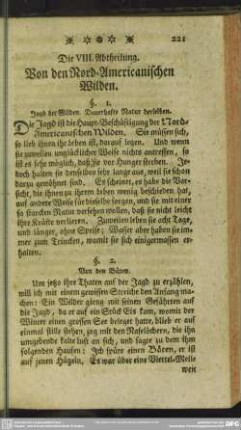 221
Die VIII. Abtheilung.
Von den Nord-Americanischen
Wilden.
§. 1.
Jagd der Wilden. Dauerhafte Natur derselben.
Die Jagd ist die Haupt-Beschäftigung der Nord-
Americanischen Wilden. Sie müssen sich,
so lieb ihnen ihr Leben ist, darauf legen. Und wenn
sie zuweilen unglücklicher Weise nichts antreffen, so
ist es sehr möglich, daß sie vor Hunger sterben. Je-
doch halten sie denselben sehr lange aus, weil sie schon
darzu gewöhnt sind. Es scheinet, es habe die Vor-
sicht, die ihnen zu ihrem Leben wenig bescheiden hat,
auf andere Weise für dieselbe sorgen, und sie mit einer
so starcken Natur versehen wollen, daß sie nicht leicht
ihre Kräfte verlieren. Zuweilen leben sie acht Tage,
und länger, ohne Speise; Wasser aber haben sie im-
mer zum Trincken, womit sie sich einigermassen er-
halten.
§. 2.
Von den Bären.
Um jetzo ihre Thaten auf der Jagd zu erzählen,
will ich mit einem gewissen Streiche den Anfang ma-
chen: Ein Wilder gieng mit seinen Gefährten auf
die Jagd, da er auf ein Stück Eis kam, womit der
Winter einen grossen See beleget hatte, blieb er auf
einmal stille stehen, zog mit den Naselöchern, die ihn
umgebende kalte Luft an sich, und sagte zu dem ihm
folgenden Haufen: Ich spüre einen Bären, er ist
auf jenen Hügeln. Es war über eine Viertel-Meile
weit